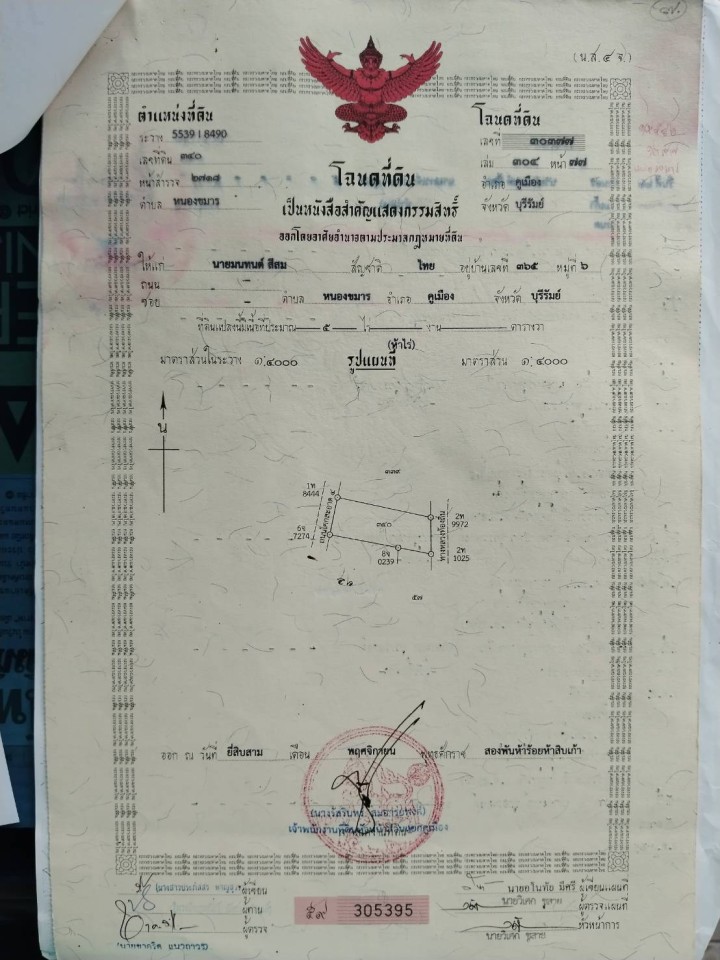 (น.ส.๔ จ.)
ตำแหน่งที่ดิน
ระวาง 5539 I 8490
เลขที่ดิน ๓๔๐
หน้าสำรวจ ๒๗๓๘
ตำบล หนองขมาร
โฉนดที่ดิน
เลขที่ ๓๐๓๗๗
เล่ม ๓๐๔ หน้า ๗๗
อำเภอ คูเมือง
จังหวัด บุรีรัมย์
โฉนดที่ดิน
เป็นหนังสือสำคัญแสดงกรรมสิทธิ์
ออกโดยอาศัยอำนาจตามประมวลกฎหมายที่ดิน
ให้แก่ นายมนทนต์ สีสม สัญชาติ ไทย อยู่บ้านเลขที่ ๓๖๕ หมู่ที่ ๖
ถนน –
ซอย – ตำบล หนองขมาร อำเภอ คูเมือง จังหวัด บุรีรัมย์
ที่ดินแปลงนี้มีเนื้อที่ประมาณ ๕ ไร่ งาน ตารางวา
(ห้าไร่)
มาตราส่วนในระวาง ๑:๔๐๐๐ รูปแผนที่ มาตราส่วน ๑:๔๐๐๐
น
๓๓๙
1ท
8444
6จ
7274
๓๔๐
2ท
9972
ทางหลวงท้องถิ่น
8จ
0239
2ท
1025
๕๗
ออก ณ วันที่ ยี่สิบสาม เดือน พฤศจิกายน พุทธศักราช สองพันห้าร้อยห้าสิบเก้า
ผู้เขียน
ผู้ทาน
ผู้ตรวจ
๕๙ 305395
มีศรี ผู้เขียนแผนที่
นายวิเศก ชูสาย ผู้ตรวจแผนที่
หัวหน้าการ
นายวิเศก ชูสาย